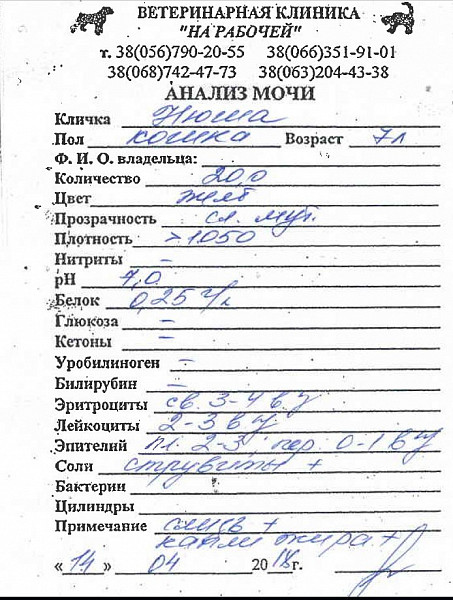 ВЕТЕРИНАРНАЯ КЛИНИКА
"НА РАБОЧЕЙ"
т. 38(056)790-20-55 38(066)351-91-01
38(068)742-47-73 38(063)204-43-38
АНАЛИЗ МОЧИ
Кличка Нюша
Пол кошка Возраст 7л
Ф. И. О. владельца:
Количество 20,0
Цвет желт
Прозрачность сл. мут.
Плотность >1050
Нитриты –
pH 7,0
Белок 0,25 г/л
Глюкоза –
Кетоны –
Уробилиноген –
Билирубин –
Эритроциты св. 3-4 в п/з
Лейкоциты 2-3 в п/з
Эпителий пл. 2-3, пер. 0-1 в п/з
Соли струвиты +
Бактерии
Цилиндры
Примечание слизь +
капли жира +
« 14 » 04 2018г.